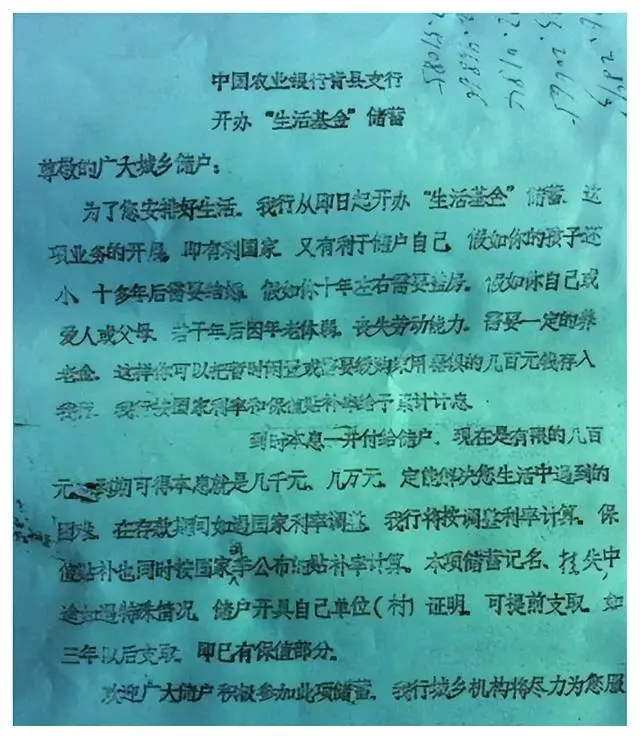 中国农业银行青县支行
开办“生活基金”储蓄
尊敬的广大城乡储户:
为了您安排好生活。我行从即日起开办“生活基金”储蓄。这
项业务的开展,即有利国家,又有利于储户自己,假如你的孩子还
小,十多年后需要结婚,假如你十年左右需要盖房。假如你自己或
爱人或父母,若干年后因年老体弱,丧失劳动能力,需要一定的养
老金,这样你可以把暂时闲置或需要缓购家用器俱的几百元钱存入
我行,我行按国家利率和保值贴补率给于累计计息。
到时本息一并付给储户,现在是有限的几百
元,到期可得本息就是几千元、几万元,定能解决您生活中遇到的
困难,在存款期间如遇国家利率调整,我行将按调整利率计算。保
值贴补也同时按国家季公布的贴补率计算。本项储蓄记名、挂失中
途如遇特殊情况,储户开具自己单位(村)证明,可提前支取,如
三年以后支取,即已有保值部分。
欢迎广大储户积极参加此项储蓄,我行城乡机构将尽力为您服